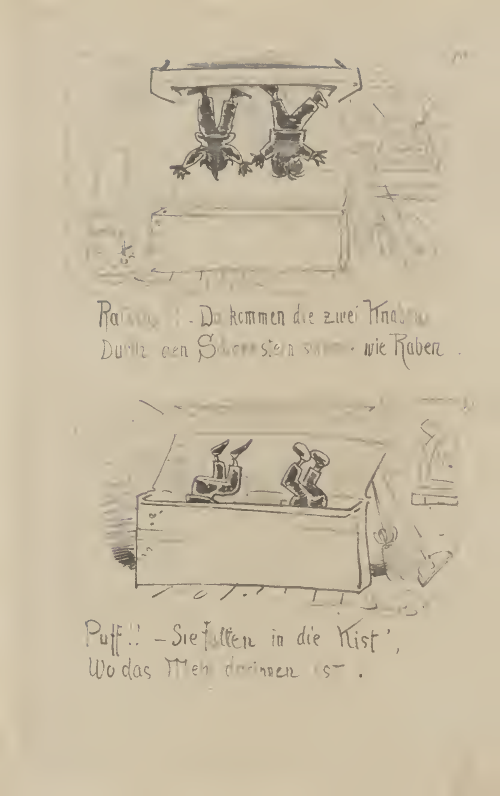 - Da kommen die zwei Knaben
Durch den Schornstein wie Raben.
Puff!! - Sie fallen in die Kist',
Wo das Mehl darinnen ist.